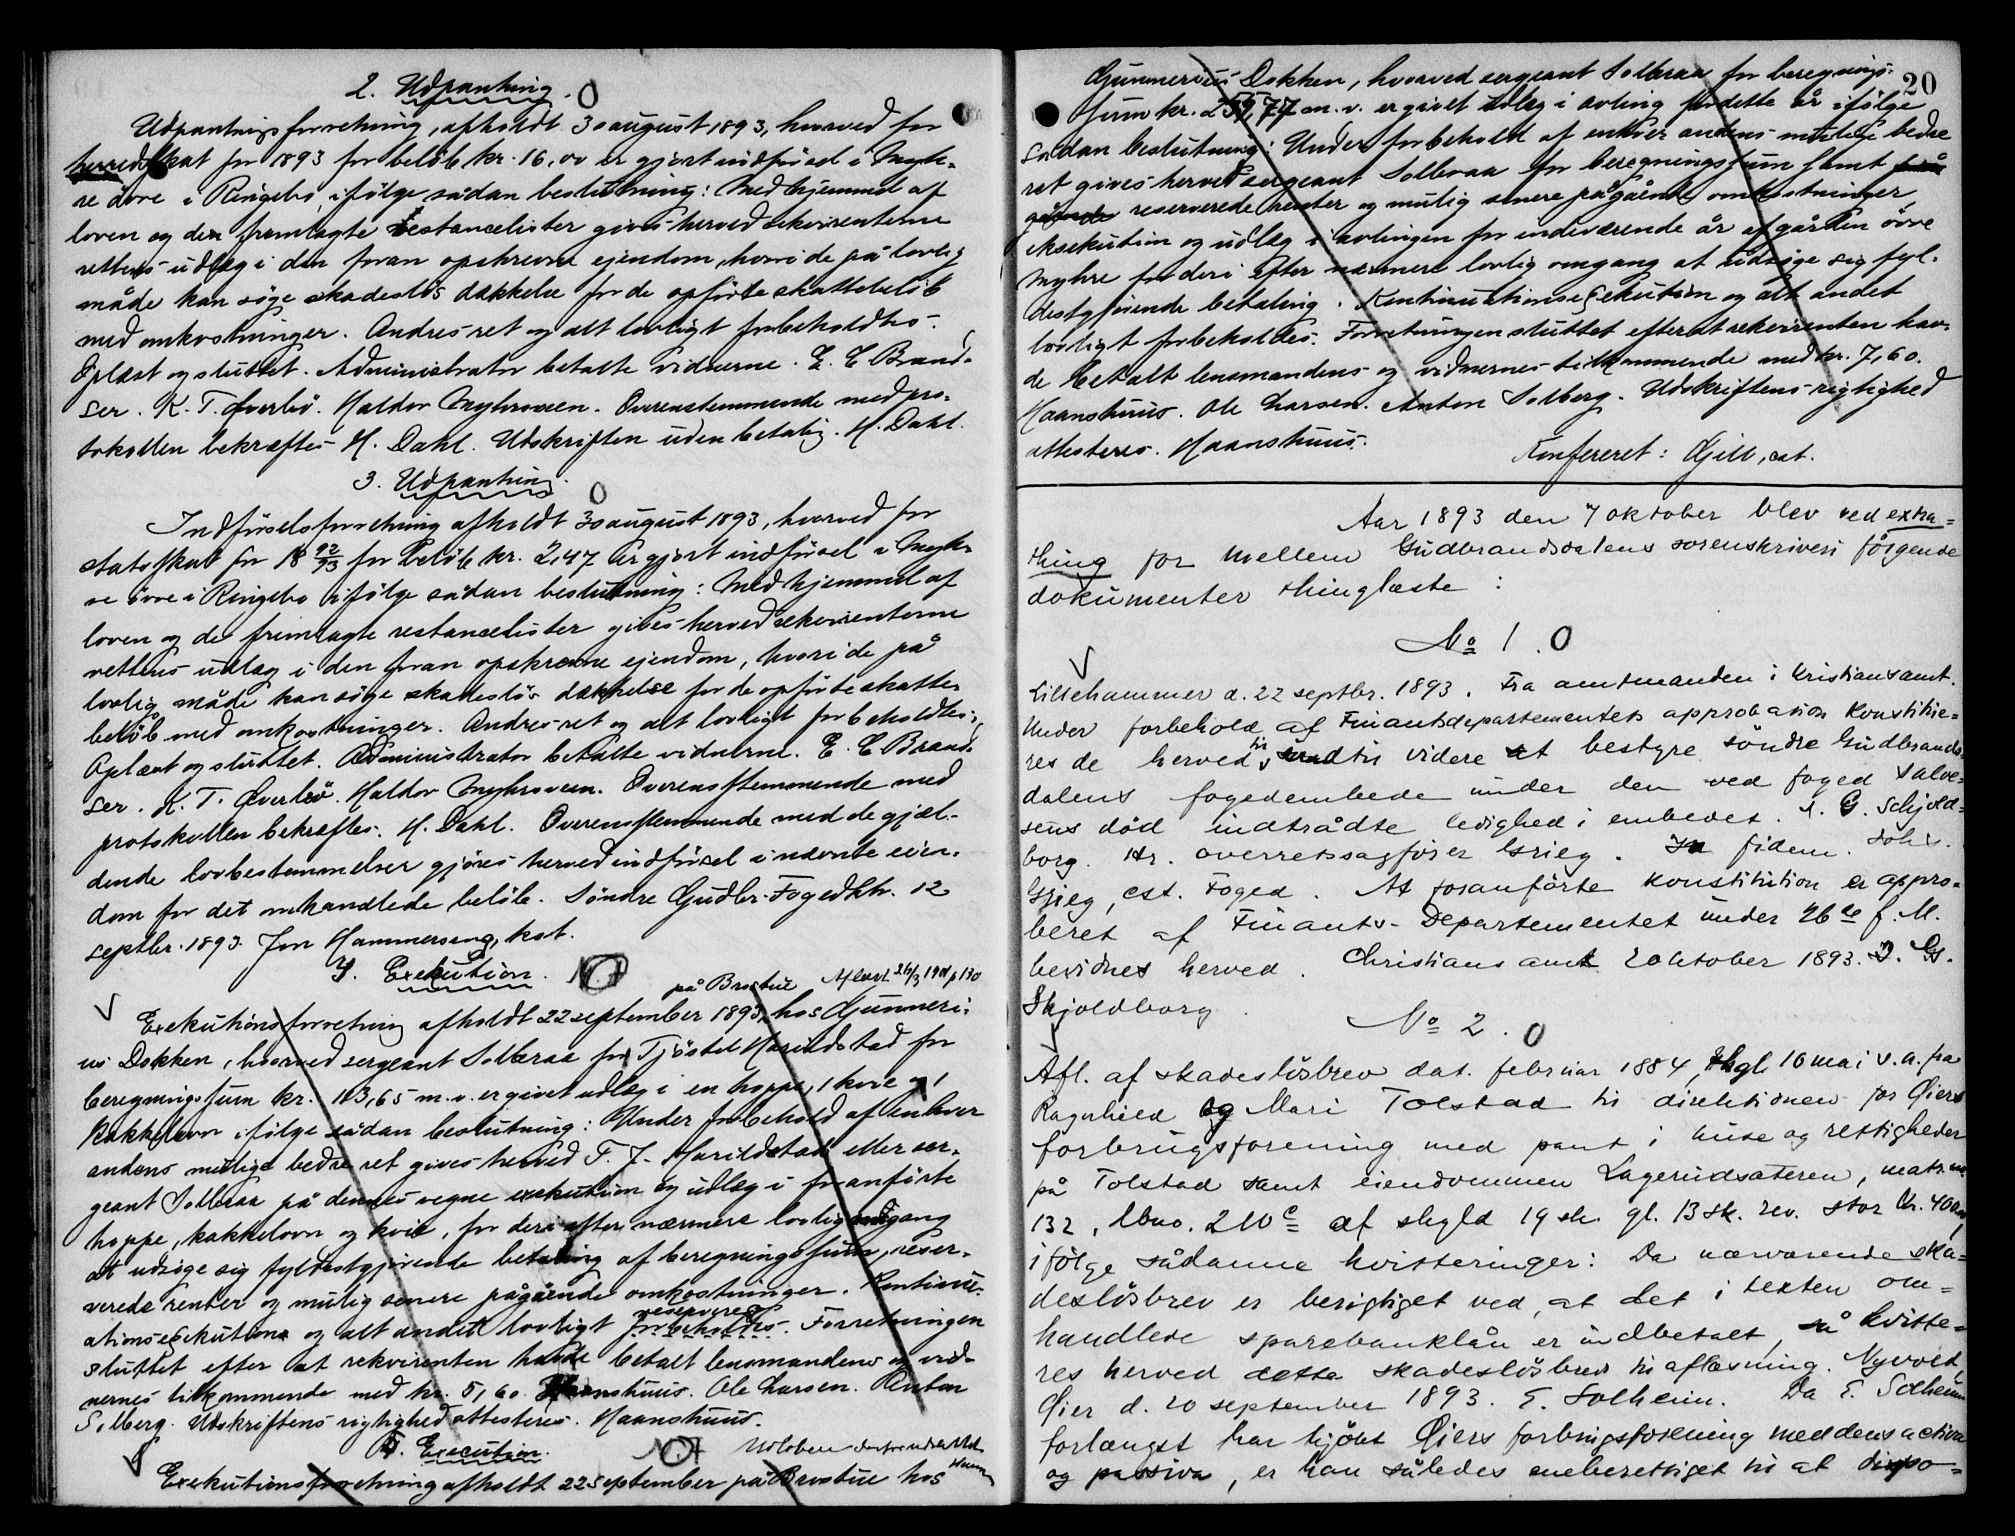 2. Udpantning. O
Udpantningsforretning, afholdt 30 august 1893, hvorved for
herredsskat for 1893 for beløb kr. 16,00 er gjort indførsel i Myh-
re övre i Ringebo, ifølge sådan beslutning: Med hjemmel af
loven og den fremlagte restancelister gives herved rekvirenterne
rettens udlæg i den foran opskrevne ejendom, hvori de på lovlig
måde kan søge skadesløs dækkelse for de opførte skattebeløb
med omkostninger. Andres ret og alt lovligt forbeholdtes.
Oplæst og sluttet. Administrator betalte vidnerne. E. C Brand-
ser. K. T. Överbö. Haldor Myhrsveen. Overenstemmende med pro-
tokollen bekræftes H. Dahl. Udskriften uden betaling. H. Dahl.
3. Udpantning. O
Indførselsforretning afholdt 30 august 1893, hvorved for
statsskat for 18 92/93 for beløb kr. 2,47 er gjort indførsel i Myh-
re övre i Ringebo ifølge sådan beslutning: Med hjemmel af
loven og de fremlagte restancelister gives herved rekvirenterne
rettens udlæg i den foran opskrevne ejendom, hvori de på
lovlig måde kan søge skadesløs dækkelse for de opførte skatte-
beløb med omkostninger. Andres ret og alt lovligt forbeholdtes.
Oplæst og sluttet. Administrator betalte vidnerne. E. C Brand-
ser. K. T. Överbö. Haldor Myhrsveen. Overensstemmende med
protokollen bekræftes. H. Dahl. Overensstemmende med de gjæl-
dende lovbestemmelser gjøres herved indførsel i nævnte eien-
dom for det omhandlede beløb. Söndre Gudbr. Fogedktr. 12
septbr. 1893. Jon Hammerseng, kst.
4. Exekution. No 7 på Brostue Aflæst 26/3 1901 p 130
Exekutionsforretning afholdt 22 september 1893, hos Gunneri-
us Dokken, hvorved sergeant Solbraa for Tjöstel Harildstad for
beregningssum kr. 113,65 m. v. er givet udlæg i en hoppe, 1 kvie og 1
kakkelovn ifølge sådan beslutning: Under forbehold af enhver
andens mulige bedre ret gives herved T. J. Harildstad eller ser-
geant Solbraa på dennes vegne exekution og udlæg i foranførte
hoppe, kakkelovn og kvie, for deri efter nærmere lovlig omgang
at udsøge sig fyldestgjørende betaling af beregningssum, reser-
verede renter og mulig senere pågående omkostninger. Kontinu-
ationsexekution og alt andet lovligt forbeholdes reserveres. Forretningen
sluttet efter at rekvirenten havde betalt lensmandens og vid-
nernes tilkommende med kr. 5,60. Haanshuus. Ole Larsen. Anton
Solberg. Udskriftens rigtighed attesteres. Haanshuus.
5. Execution. No 7
Exekutionsforretning afholdt 22 september på Brostue hos
20
Gunnerius Dokken, hvorved sergeant Solbraa for beregnings-
sum kr. 259,77 m. v. er givet udlæg i avling for dette år ifølge
sådan beslutning: Under forbehold af enhver andens mulige bedre
ret gives herved sergeant Solbraa for beregningssum samt
reserverede renter og mulig senere pågående omkostninger
eksekution og udlæg i avlingen for indeværende år af gården övre
Myhre for deri efter nærmere lovlig omgang at udsøge sig fyl-
destgjørende betaling. Kontinuationsexekution og alt andet
lovligt forbeholdes. Forretningen sluttet efter at rekvirenten hav-
de betalt lensmandens og vidnernes tilkommende med kr. 7,60.
Haanshuus. Ole Larsen. Anton Solberg. Udskriftens rigtighed
attesteres. Haanshuus.
Konfereret: Gjell, cst.
Aar 1893 den 7 oktober blev ved extra-
thing for Mellem Gudbrandsdalens sorenskriveri følgende
dokumenter thinglæste:
No 1. O
Lillehammer d. 22 septbr. 1893. Fra amtmanden i Kristiansamt.
Under forbehold af Finantsdepartementets approbation konstitue-
res de herved til indtil videre at bestyre söndre Gudbrands-
dalens fogedembede under den ved foged Salve-
sens död indtrådte ledighed i embedet. A. G. Schjold-
borg. Hr. overretssagfører Grieg. In fidem. Johs.
Grieg, cst. Foged. At foranförte konstitution er appro-
beret af Finants-Departementet under 26de f. M.
bevidnes herved. Christians amt 2 oktober 1893. J. G.
Skjoldborg.
No 2. O
Afl. af skadeslösbrev dat. februar 1884, thgl. 10 mai s. a. fra
Ragnhild og Mari Tolstad til direktionen for Öiers
forbrugsforening med pant i huse og rettigheder
på Tolstad samt eiendommen Lagerudsæteren, matr. no.
132, lbno. 210c af skyld 19 sk. gl. 13 sk. rev. stor kr. 400,00,
ifölge sådanne kvitteringer: Da nærværende ska-
deslösbrev er berigtiget ved, at det i texten om-
handlede sparebanklån er indbetalt, så kvitte-
res herved dette skadeslösbrev til aflæsning. Nyvold
Öier d. 20 september 1893. E. Solheim. Da E. Solheim
forlængst har kjöbt Öiers forbrugsforening med dens activa
og passiva, er han således eneberettiget til at dispo-